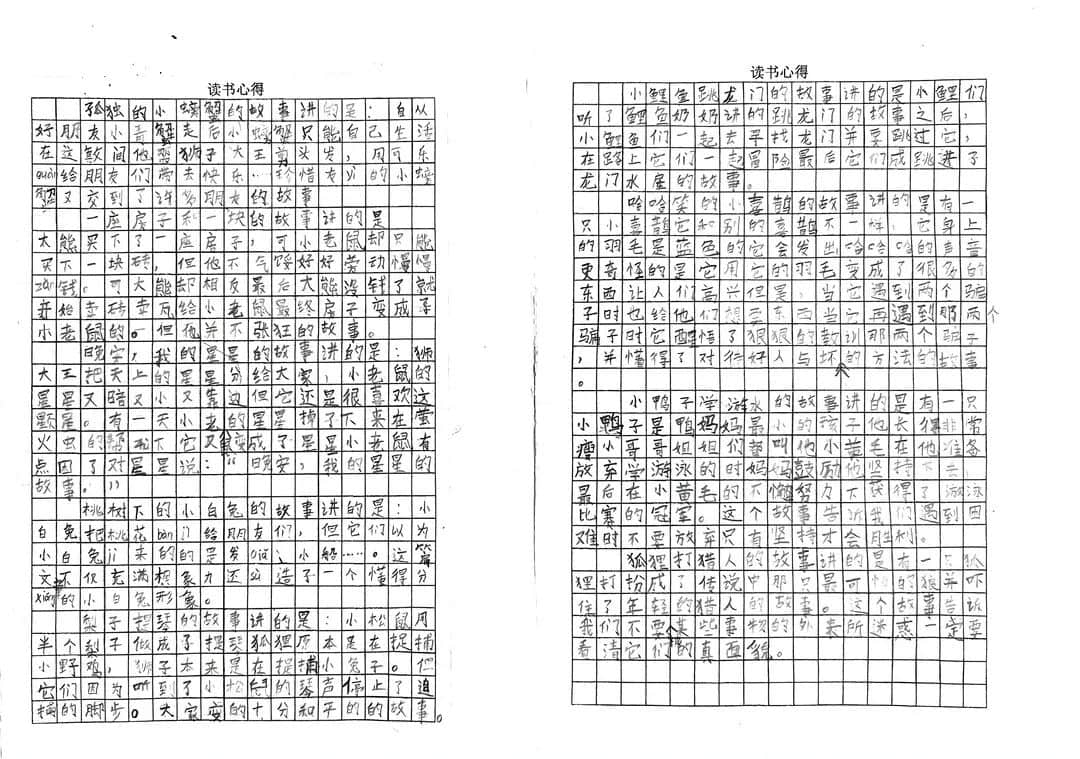 读书心得
孤独的小螃蟹的故事讲的是：自从
好朋友小青蟹走后小螃蟹只能自己生活
在这段间他帮狮子大王剪头发，用可乐
quàn给朋友们带去快乐……珍惜友yì的小螃
蟹又交到了许多朋友的故事
一座房子和一块的故事讲的是
大熊买下了一座房子，可小老鼠却只能
买下一块砖，但他不气馁好好劳动慢慢
zuàn钱。可大熊却相反最后大熊没钱了就
开始卖砖卖瓦给小老鼠最终房子变成了
小老鼠的。但他并不张狂的故事。
晚安，我的星星的故事讲的是：狮
大王把天上的星星分给大家，小老鼠的
星星又暗又小又靠边但它还是很喜欢这
颗星。有一天小老的星星掉了下来在萤
火虫的帮助下它又变成了星星小老鼠有
点困了对星星说：“晚安，我的星星的
故事。”
桃树下的小白兔的故事讲的是：小
白兔把桃花bàn门给朋友们，但它们以为
小白兔jì来的的是发qiǎ、小船……。这篇
文不仅充满想象力还公造了一个懂得分
xiǎng的小白兔形象。
梨子提琴的故事讲的是：小松鼠用
半个梨子做成了提琴狐狸原本是在捉捕
小野鸡，狮子本来是在捉捕小兔子。但
它们因为听到了小松鼠的琴声停止了追
捕的脚步。大家变的十分和平的的故事。
读书心得
小鲤鱼跳龙门的故事讲的是小鲤们
听了鲤鱼奶奶讲的跳龙门的故事之后，
小鲤鱼们一起去寻找龙门并要跳过它，
在路上它们一起冒险最后它们成跳进了
龙门水库的故事。
哈哈笑的小喜鹊的故事讲的是有一
只小喜鹊它和别的喜鹊不一样，它身上
的羽毛是蓝色的它会发出哈哈哈的声音
更奇怪的是它用它的羽毛变成了很多的
东西让人们高兴但是，当它遇到两个骗
子时也给他们想要东西当它再遇到那两个
骗子时它醒悟了狠狠的教训那两个骗子
，并懂得了对待好人与坏的方法的故事
。
小鸭子学游水的故事讲的是有一只
小鸭子是鸭妈妈最小的孩子他长得非常
瘦小哥哥姐姐们都叫他小黄毛在他准备
放弃学游泳的时妈妈鼓励他坚持下去，
最后在小黄毛的不懈努力下获得了游泳
比赛的冠军。这个故事告诉我们遇到困
难时不要放弃只有坚持才会胜利。
狐狸打猎人的故事讲的是有一只狐
狸打扮成了传说中那只最可怕的狼并吓
住了年轻的猎人的故事。这个故事告诉
我们不要被某些事物的外来所迷惑一定要
看清它们的真面貌。